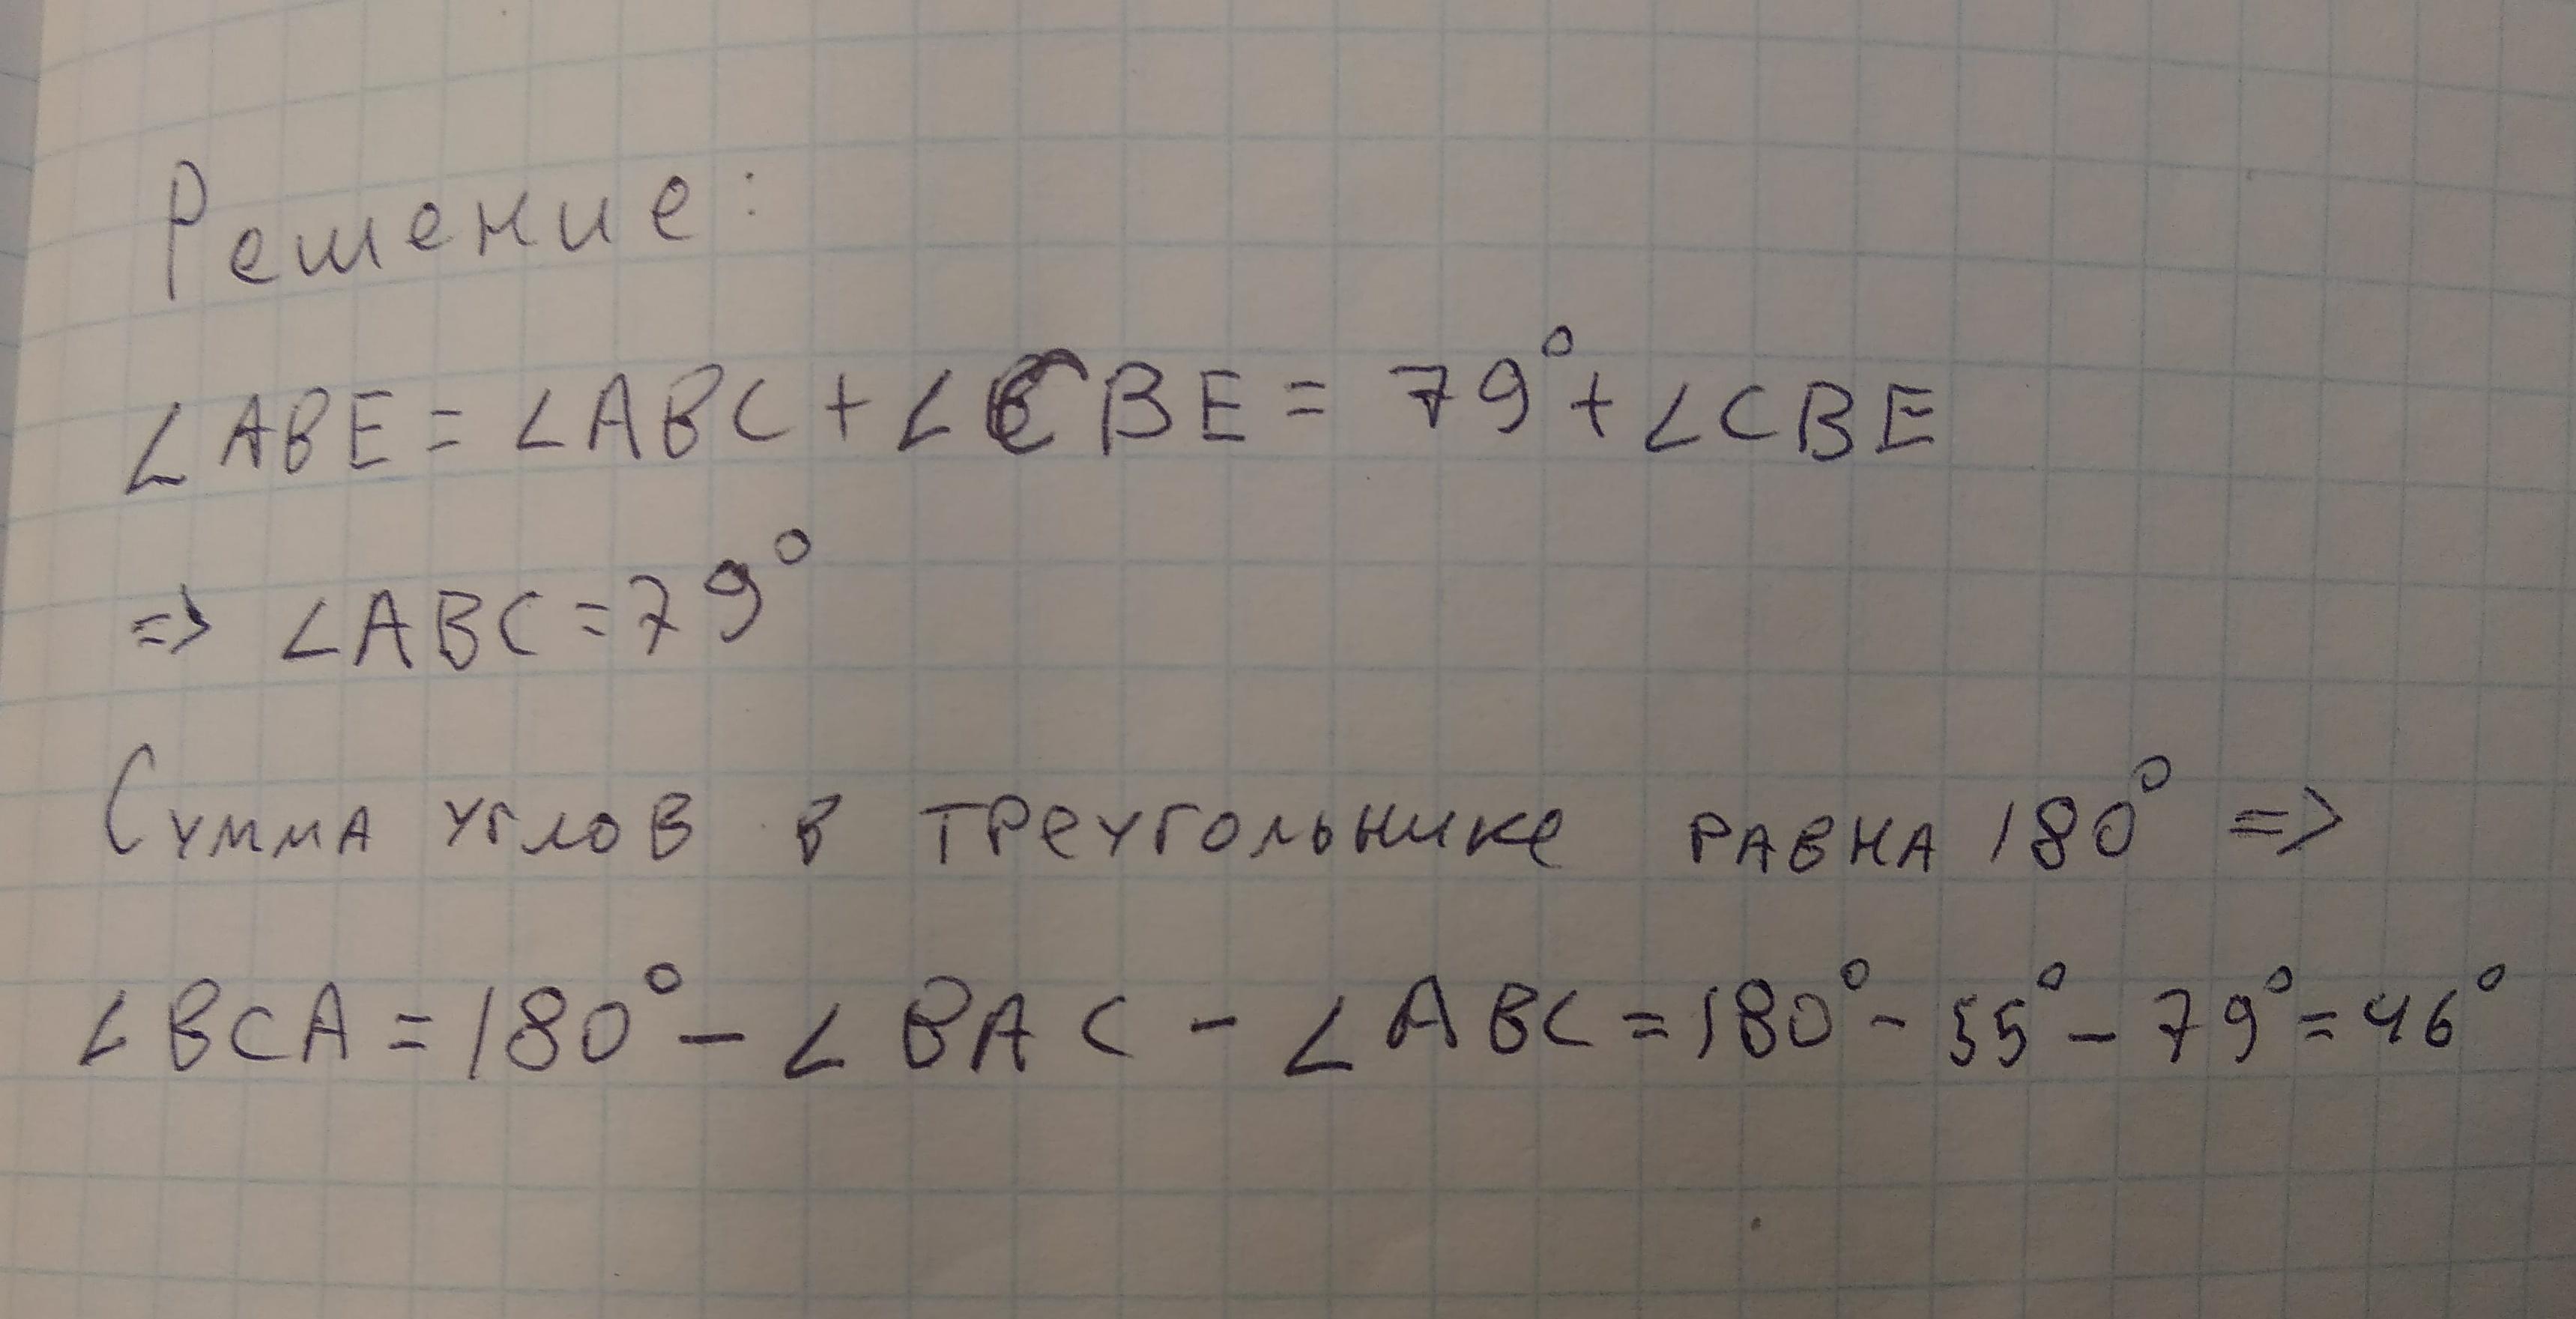 Решение:
∠ABE = ∠ABC + ∠CBE = 79° + ∠CBE
=> ∠ABC = 79°
Сумма углов в треугольнике равна 180° =>
∠BCA = 180° - ∠BAC - ∠ABC = 180° - 55° - 79° = 46°